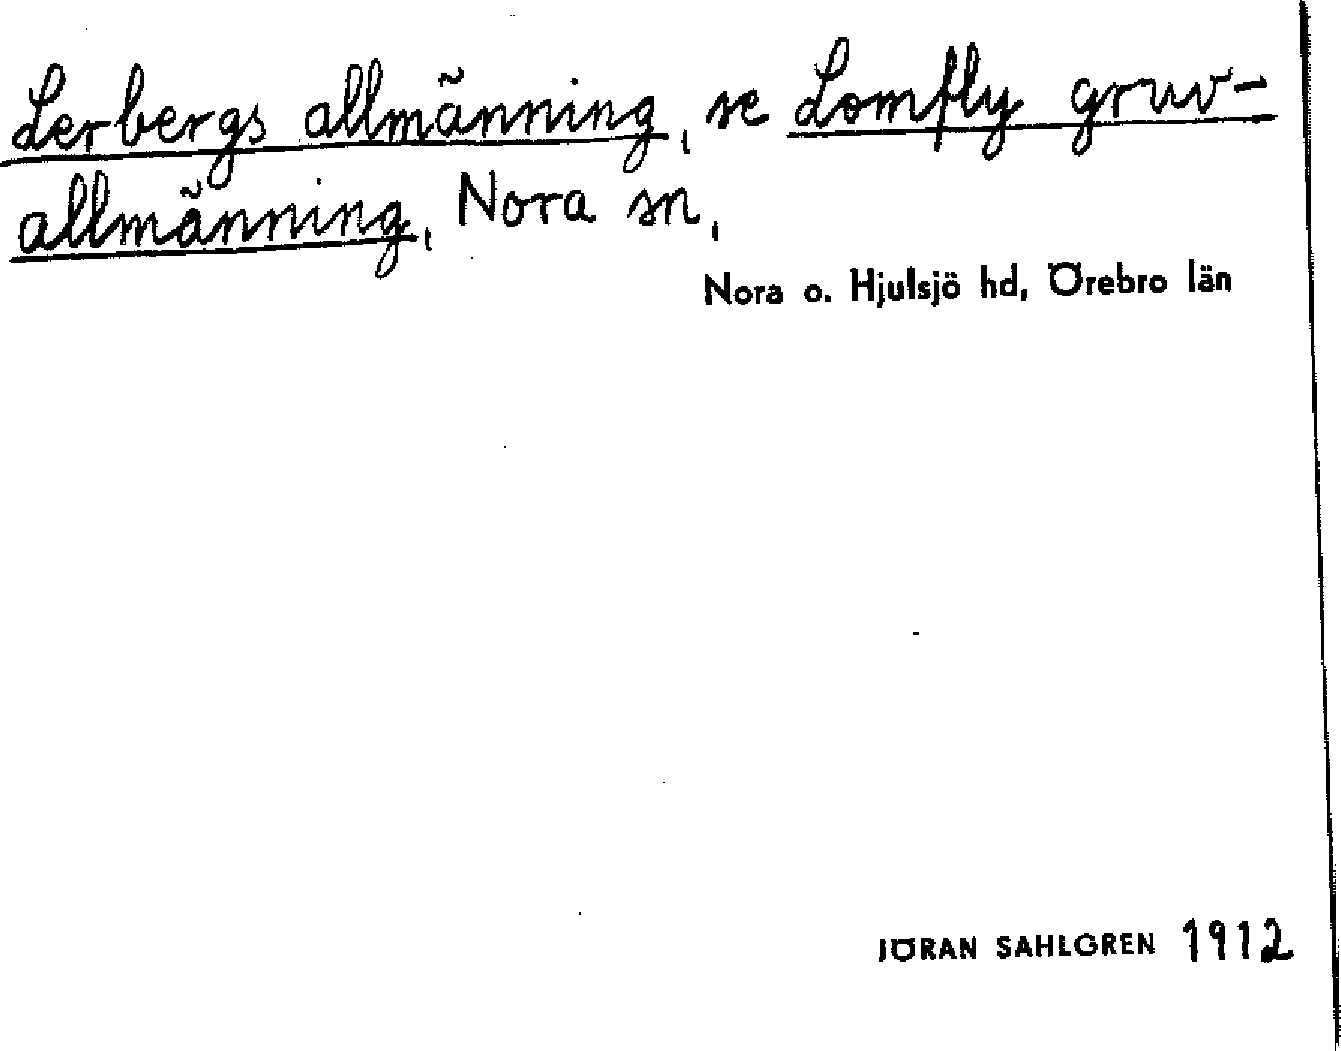 Lerbergs allmänning, se Lomfly gruv-
allmänning, Nora sn,
Nora o. Hjulsjö hd, Örebro län
JÖRAN SAHLGREN 1912